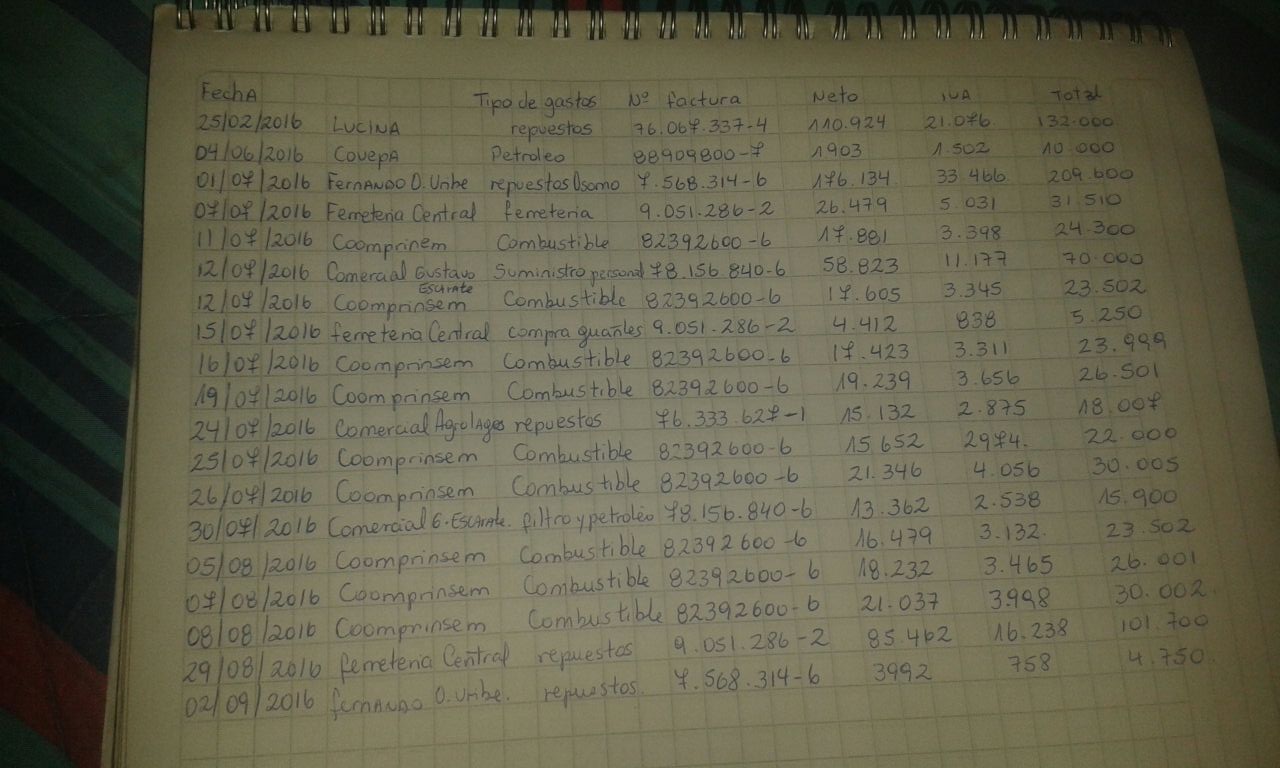 FechA Tipo de gastos Nº factura Neto IVA Total
25/02/2016 LUCINA repuestos 76.067.337-4 110.924 21.076 132.000
04/06/2016 CovepA Petroleo 88909800-7 1903 1.502 10.000
01/07/2016 FerNANDO O. Uribe repuestos Osorno 7.568.314-6 176.134 33.466 209.600
07/07/2016 Ferreteria Central ferreteria 9.051.286-2 26.479 5.031 31.510
11/07/2016 Coomprinem Combustible 82392600-6 17.881 3.398 24.300
12/07/2016 Comercial Gustavo Suministro personal 78.156.840-6 58.823 11.177 70.000
Escárate
12/07/2016 Coomprinsem Combustible 82392600-6 17.605 3.345 23.502
15/07/2016 ferreteria Central compra guantes 9.051.286-2 4.412 838 5.250
16/07/2016 Coomprinsem Combustible 82392600-6 17.423 3.311 23.999
19/07/2016 Coomprinsem Combustible 82392600-6 19.239 3.656 26.501
24/07/2016 Comercial AgrolAgos repuestos 76.333.627-1 15.132 2.875 18.007
25/07/2016 Coomprinsem Combustible 82392600-6 15.652 2974. 22.000
26/07/2016 Coomprinsem Combustible 82392600-6 21.346 4.056 30.005
30/07/2016 Comercial G. EscArate. filtro y petroleo 78.156.840-6 13.362 2.538 15.900
05/08/2016 Coomprinsem Combustible 82392600-6 16.479 3.132. 23.502
07/08/2016 Coomprinsem Combustible 82392600-6 18.232 3.465 26.001
08/08/2016 Coomprinsem Combustible 82392600-6 21.037 3.998 30.002.
29/08/2016 ferreteria Central repuestos 9.051.286-2 85.462 16.238 101.700
02/09/2016 ferNANDO O. Uribe. repuestos. 7.568.314-6 3992 758 4.750.